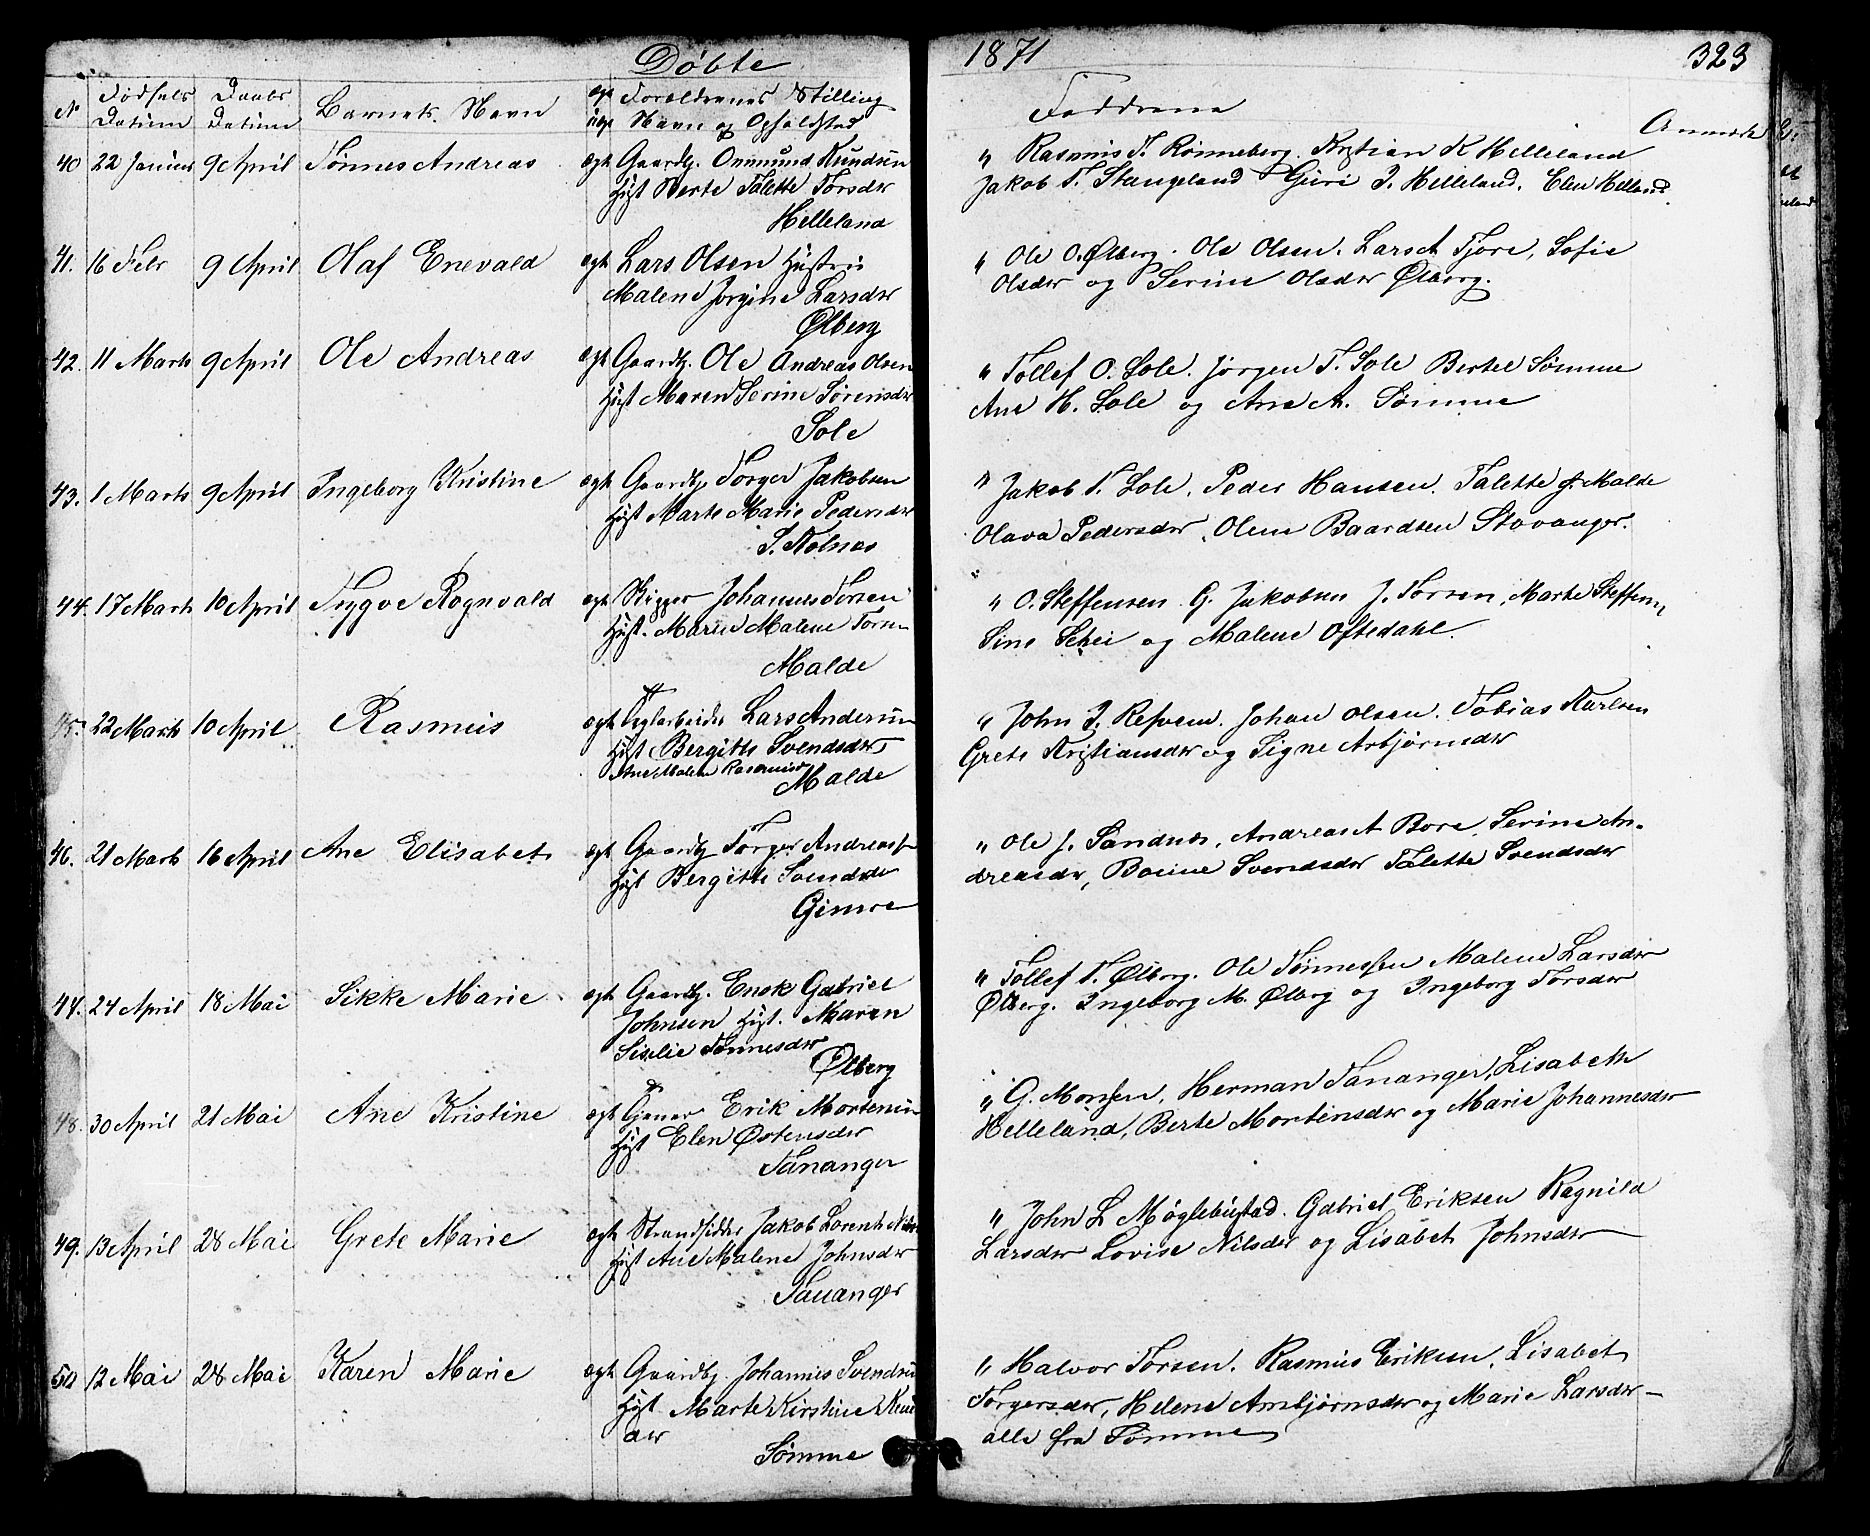 Døbte
1871
323
N
Fødsels Datum
Daabs Datum
Barnets Navn
ægt uægt
Forældrenes Stilling
Navn og Opholdsted
Faddrene
Anmærk
40 22 Januar 9 April Tønnes Andreas ægt Gaardbr. Ommund Knudsen
Hust Berte Talette Torsdtr
Helleland
„ Rasmus T. Rønneberg. Kristian K Helleland
Jakob T. Stangeland Guri J. Helleland. Elen Helland
41. 16 Febr 9 April Olaf Enevald ægt Lars Olsen Hustru
Malene Jorgine Larsdtr
Ølberg
„ Ole O. Ølberg. Ole Olsen. Lars A Tjore, Sofie
Olsdtr og Serine Olsdtr Ølberg.
42. 11 Marts 9 April Ole Andreas ægt Gaardbr. Ole Andreas Olsen
Hust Maren Serine Sørensdtr
Sole
„ Tollef O. Sole. Jørgen T. Sole Bertel Sømme
Ane H. Sole og Ane A. Sømme
43. 1 Marts 9 April Ingeborg Kristine ægt Gaardbr Torger Jakobsen
Hust Marte Marie Pedersdtr
S. Kolnes
„ Jakob T. Sole. Peder Hansen. Talette J. Malde
Olava Pedersdtr, Olene Baardsen Stavanger.
44. 17 Marts 10 April Trygve Rognvald ægt Skipper Johannes Torsen
Hust. Maren Malene Torsn
Malde
„ O. Steffensen G. Jakobsen J. Torsen, Marte Steffens,
Sine Schei og Malene Oftedahl.
45. 22 Marts 10 April Rasmus ægt Teglarbeider Lars Andersen
Hust Bergitte Svendsdtr
Ane Malene Rasmusd
Malde
„ John J. Refvem. Johan Olsen. Tobias Karlsen
Grete Kristiansdtr og Signe Asbjørnsdtr
46. 21 Marts 16 April Ane Elisabet ægt Gaardbr Torger Andreass
Hust Bergitte Svendsdtr
Gimre
„ Ole J. Sandnes, Andreas A Bore, Serine An-
dreasdtr, Boline Svendsdtr Talette Svendsdtr
47. 24 April 18 Mai Sikke Marie ægt Gaardbr. Enok Gabriel
Johnsen Hust. Maren
Siselie Tønnesdtr
Ølberg
„ Tollef T. Ølberg. Ole Tønnessen Malene Larsdtr
Ølberg. Ingeborg M. Ølberg og Ingeborg Torsdtr
48. 30 April 21 Mai Ane Kristine ægt Tjener Erik Mortensen
Hust Elen Østensdtr
Tananger
„ G. Monsen, Herman Tananger, Lisabeth
Helleland, Berte Mortensdtr og Marie Johannesdtr
49. 13 April 28 Mai Grete Marie ægt Strandsidder Jakob Lorents Nils
Hust Ane Malene Johnsdtr
Tananger
„ John L Møglebustad. Gabriel Eriksen Ragnild
Larsdtr Lovise Nilsdtr og Lisabet Johnsdtr
50 12 Mai 28 Mai Karen Marie ægt Gaardbr. Johannes Svendsen
Hust Marte Kirstine Knud
dtr
Sømme
„ Halvor Torsen. Rasmus Eriksen, Lisabet
Torgersdtr, Helene Ambjørnsdtr og Marie Larsdtr
alle fra Sømme